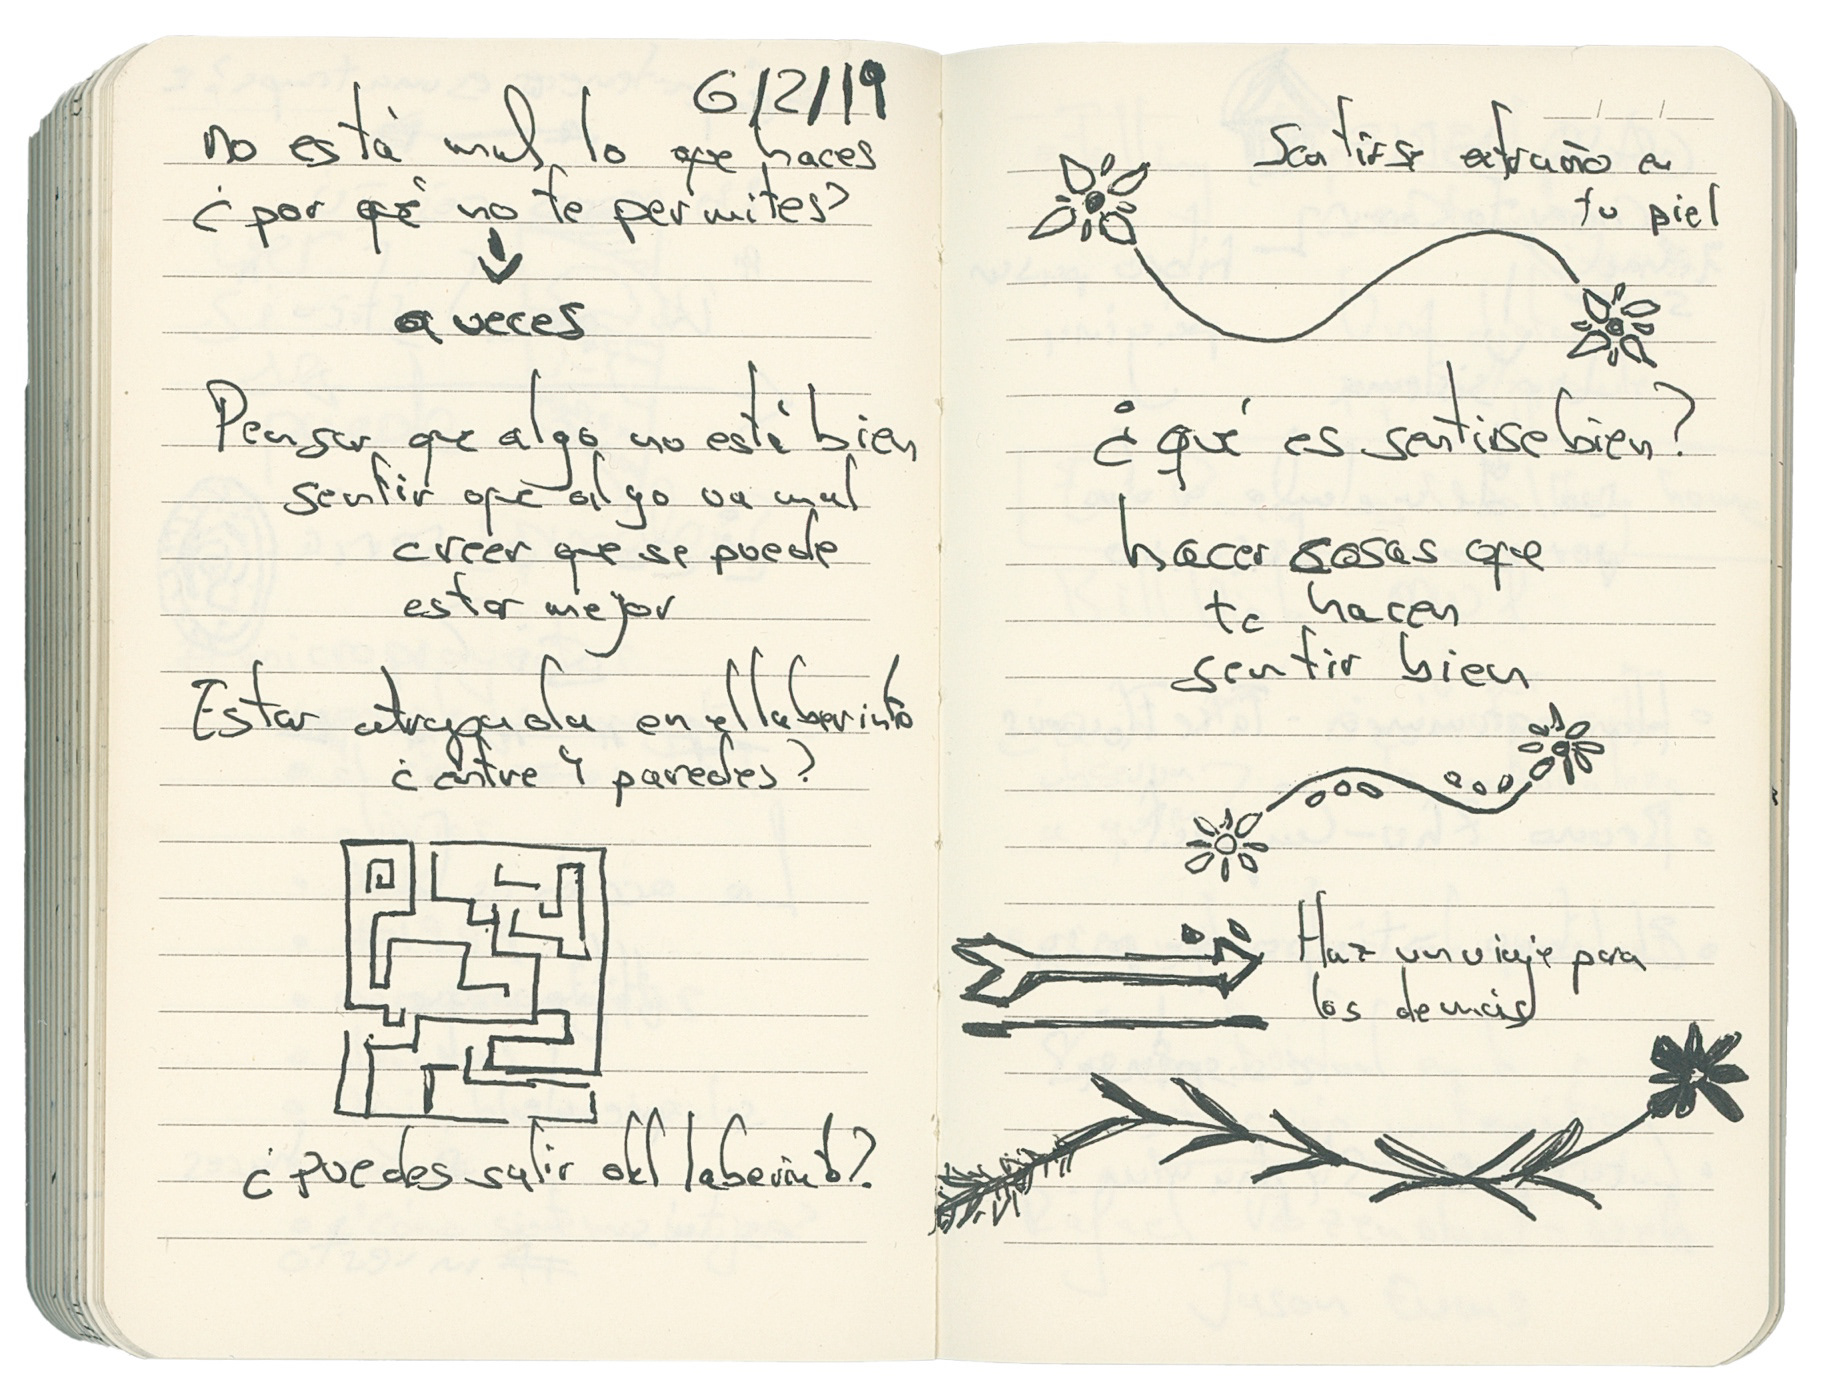 6/2/19
no está mal lo que haces
¿por qué no te permites?
a veces
Pensar que algo no está bien
sentir que algo va mal
creer que se puede
estar mejor
Estar atrapada en el laberinto
¿entre 4 paredes?
¿puedes salir del laberinto?
Sentirse extraño en
tu piel
¿qué es sentirse bien?
hacer cosas que
te hacen
sentir bien
Haz un viaje para
los demás